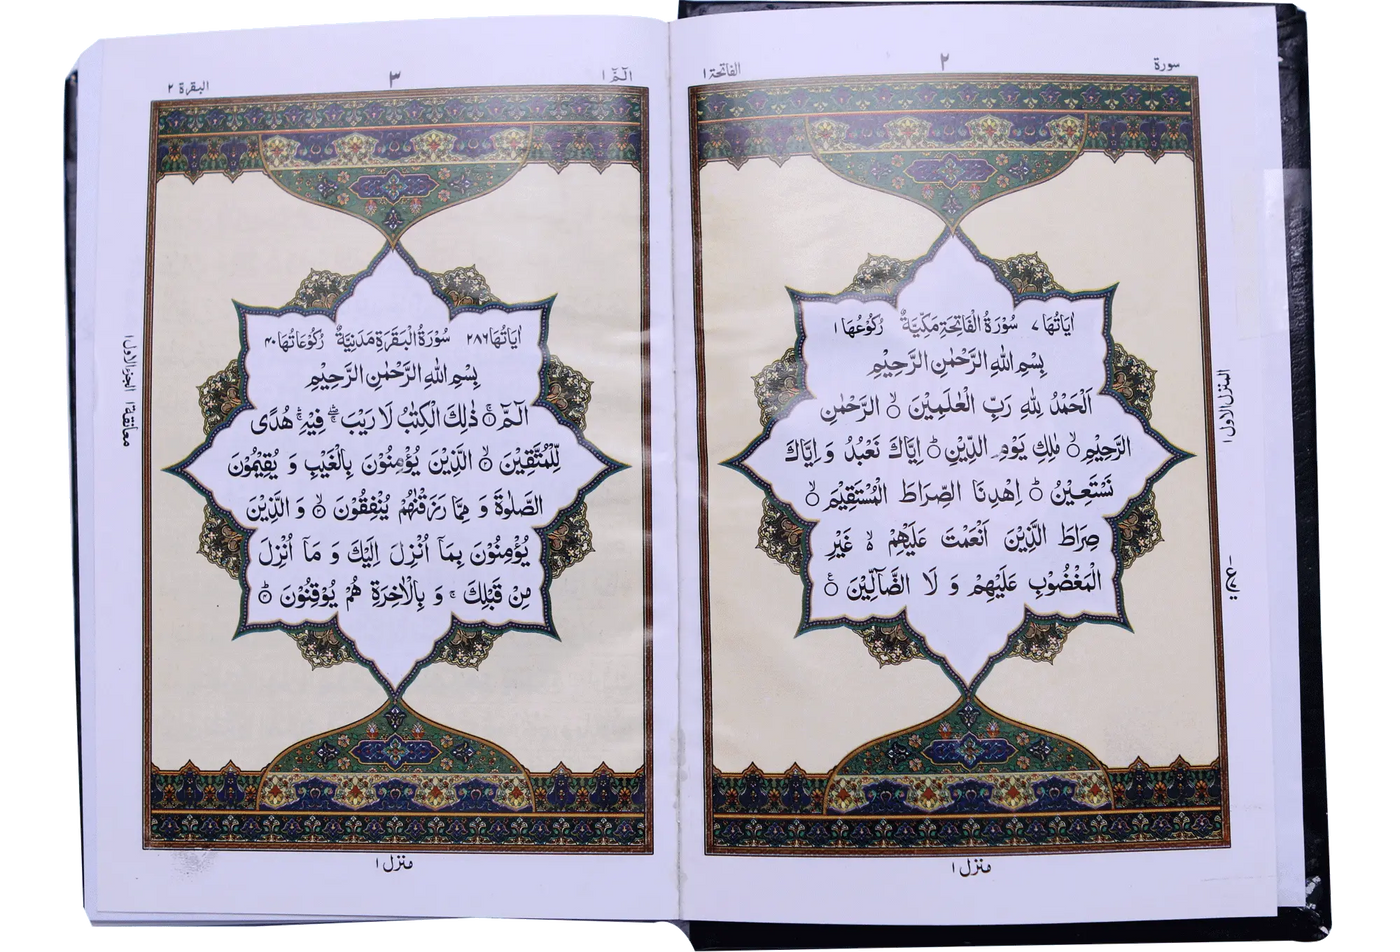 سورة
٢
الفاتحة ١
اٰيَاتُهَا ٧ سُوْرَةُ الْفَاتِحَةِ مَكِّيَّةٌ رُكُوْعُهَا ١
بِسْمِ اللّٰهِ الرَّحْمٰنِ الرَّحِيْمِ
اَلْحَمْدُ لِلّٰهِ رَبِّ الْعٰلَمِيْنَ ۙ الرَّحْمٰنِ
الرَّحِيْمِ ۙ مٰلِكِ يَوْمِ الدِّيْنِ ؕ اِيَّاكَ نَعْبُدُ وَ اِيَّاكَ
نَسْتَعِيْنُ ؕ اِهْدِنَا الصِّرَاطَ الْمُسْتَقِيْمَ ۙ
صِرَاطَ الَّذِيْنَ اَنْعَمْتَ عَلَيْهِمْ ۙ غَيْرِ
الْمَغْضُوْبِ عَلَيْهِمْ وَ لَا الضَّآلِّيْنَ
المنزل الاول ١
منزل ١
الٓمّٓ ١
٣
البقرة ٢
اٰيَاتُهَا ٢٨٦ سُوْرَةُ الْبَقَرَةِ مَدَنِيَّةٌ رُكُوْعَاتُهَا ٤٠
بِسْمِ اللّٰهِ الرَّحْمٰنِ الرَّحِيْمِ
الٓمّٓ ۚ ذٰلِكَ الْكِتٰبُ لَا رَيْبَ ۛۖ فِيْهِ ۛۚ هُدًى
لِّلْمُتَّقِيْنَ ۙ الَّذِيْنَ يُؤْمِنُوْنَ بِالْغَيْبِ وَ يُقِيْمُوْنَ
الصَّلٰوةَ وَ مِمَّا رَزَقْنٰهُمْ يُنْفِقُوْنَ ۙ وَ الَّذِيْنَ
يُؤْمِنُوْنَ بِمَآ اُنْزِلَ اِلَيْكَ وَ مَآ اُنْزِلَ
مِنْ قَبْلِكَ ۚ وَ بِالْاٰخِرَةِ هُمْ يُوْقِنُوْنَ ؕ
الجزء الاول ١
معانقة ١
منزل ١